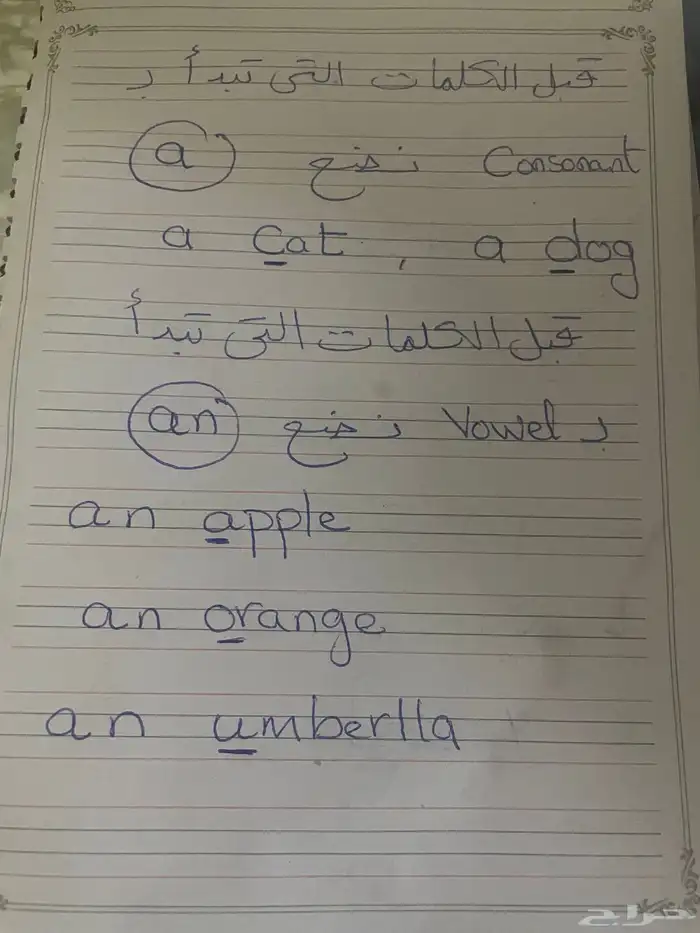 قبل الكلمات التي تبدأ بـ
Consonant نضع a
a cat , a dog
قبل الكلمات التي تبدأ
بـ Vowel نضع an
an apple
an orange
an umberlla
حراج